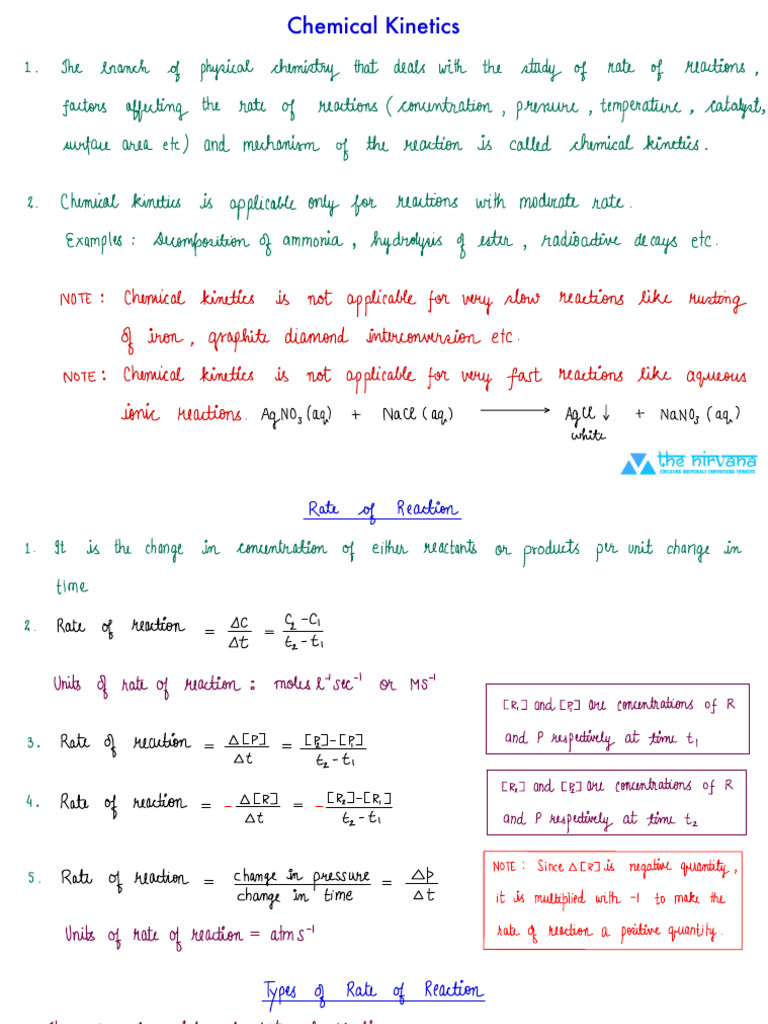 Chemical Kinetics
1. The branch of physical chemistry that deals with the study of rate of reactions,
factors affecting the rate of reactions (concentration, pressure, temperature, catalyst,
surface area etc) and mechanism of the reaction is called chemical kinetics.
2. Chemical kinetics is applicable only for reactions with moderate rate.
Examples: Decomposition of ammonia, hydrolysis of ester, radioactive decays etc.
NOTE: Chemical kinetics is not applicable for very slow reactions like rusting
of iron, graphite diamond interconversion etc.
NOTE: Chemical kinetics is not applicable for very fast reactions like aqueous
ionic reactions. AgNO₃(aq) + NaCl(aq) ⟶ AgCl↓ + NaNO₃(aq)
white
the nirvana
EDUCATING INDIVIDUALS EMPOWERING THINKERS
Rate of Reaction
1. It is the change in concentration of either reactants or products per unit change in
time
2. Rate of reaction = ΔC/Δt = C₂-C₁/t₂-t₁
Units of rate of reaction: moles l⁻¹ sec⁻¹ or MS⁻¹
[R₁] and [P₁] are concentrations of R
and P respectively at time t₁
3. Rate of reaction = Δ[P]/Δt = [P₂]-[P₁]/t₂-t₁
4. Rate of reaction = -Δ[R]/Δt = -[R₂]-[R₁]/t₂-t₁
[R₂] and [P₂] are concentrations of R
and P respectively at time t₂
5. Rate of reaction = change in pressure/change in time = Δp/Δt
Units of rate of reaction = atm s⁻¹
NOTE: Since Δ[R] is negative quantity,
it is multiplied with -1 to make the
rate of reaction a positive quantity.
Types of Rate of Reaction